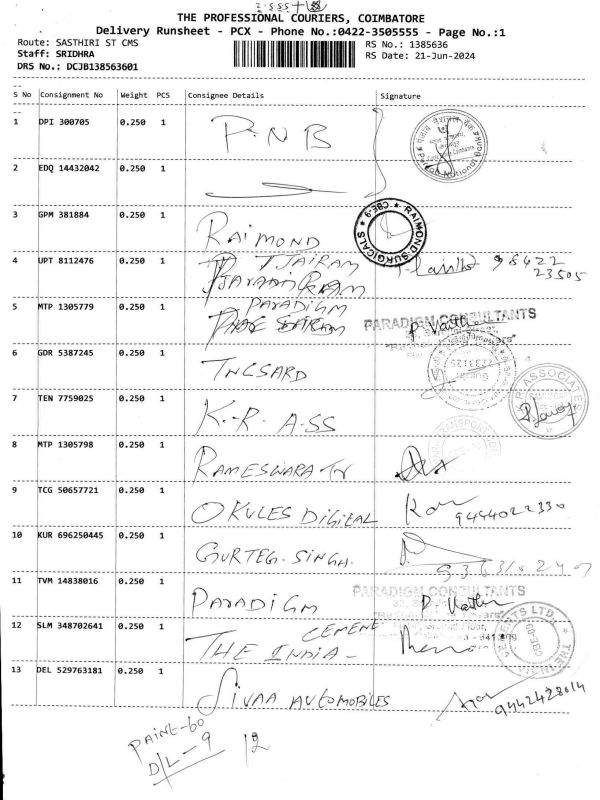 THE PROFESSIONAL COURIERS, COIMBATORE
Delivery Runsheet - PCX - Phone No.:0422-3505555 - Page No.:1
Route: SASTHIRI ST CMS
RS No.: 1385636
Staff: SRIDHRA
RS Date: 21-Jun-2024
DRS No.: DCJB138563601
S No Consignment No Weight PCS Consignee Details Signature
1 DPI 300705 0.250 1 P.N B
2 EDQ 14432042 0.250 1
3 GPM 381884 0.250 1 RAIMOND RAIMOND SURGICALS CBE-9
4 UPT 8112476 0.250 1 TJAIRAM 98422
23505
5 MTP 1305779 0.250 1 PARADIGM PARADIGM CONSULTANTS
6 GDR 5387245 0.250 1 TNCSARD
7 TEN 7759025 0.250 1 K.R. A-SS ASSOCIATES
8 MTP 1305798 0.250 1 RAMESWARA Tr
9 TCG 50657721 0.250 1 OKULES DIGITAL 9444022330
10 KUR 696250445 0.250 1 GURTEG. SINGH.
11 TVM 14838016 0.250 1 PARADIGM PARADIGM CONSULTANTS
12 SLM 348702641 0.250 1 THE INDIA - CEMENT
13 DEL 529763181 0.250 1 SIVAA AUTOMOBILES 9442428014
PAINT-60
D/L-9 12